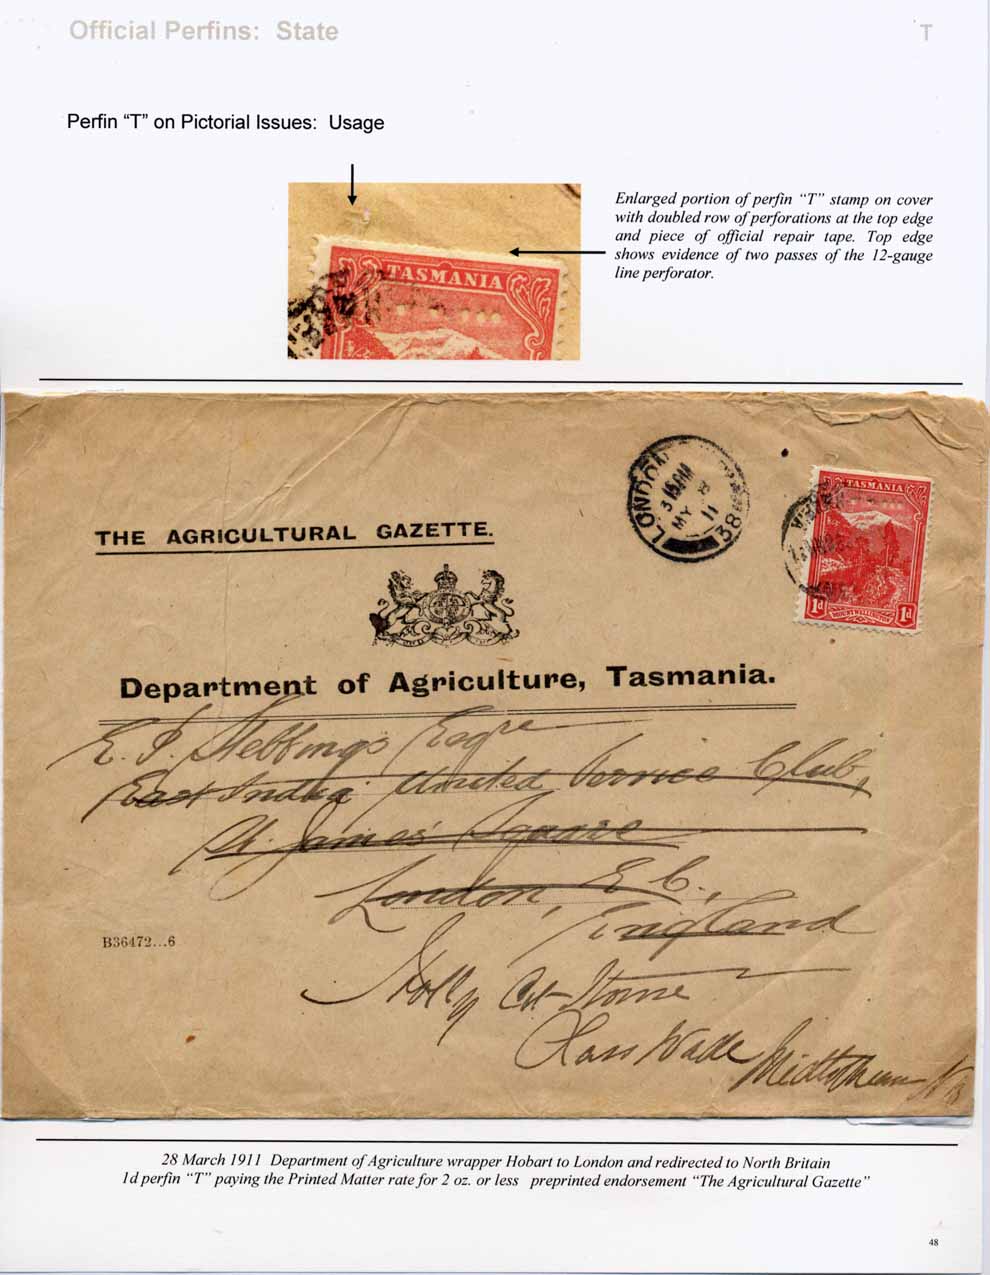 Official Perfins: State
T
Perfin “T” on Pictorial Issues: Usage
Enlarged portion of perfin “T” stamp on cover
with doubled row of perforations at the top edge
and piece of official repair tape. Top edge
shows evidence of two passes of the 12-gauge
line perforator.
TASMANIA
LONDON
3 15 AM
MY
11
38
TASMANIA
1d
1d
MOUNT WELLINGTON
THE AGRICULTURAL GAZETTE.
Department of Agriculture, Tasmania.
E. P. Stebbings Esqre
East India United Service Club,
St. James' Square
London, E C.,
England
B36472...6
Holly Cot-
Lass Wade Midlothian N B
28 March 1911 Department of Agriculture wrapper Hobart to London and redirected to North Britain
1d perfin “T” paying the Printed Matter rate for 2 oz. or less preprinted endorsement “The Agricultural Gazette”
48